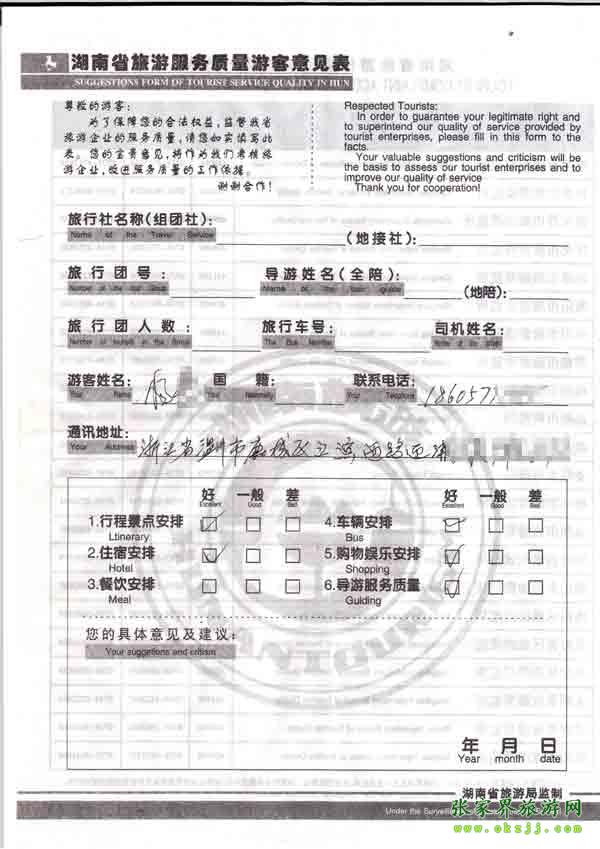 湖南省旅游服务质量游客意见表
SUGGESTIONS FORM OF TOURIST SERVICE QUALITY IN HUN
尊敬的游客:
为了保障您的合法权益,监督我省
旅游企业的服务质量,请您如实填写此
表。您的宝贵意见,将作为我们考核旅
游企业,改进服务质量的工作依据。
谢谢合作!
Respected Tourists:
In order to guarantee your legitimate right and
to superintend our quality of service provided by
tourist enterprises, please fill in this form to the
facts.
Your valuable suggestions and criticism will be
the basis to assess our tourist enterprises and to
improve our quality of service
Thank you for cooperation!
旅行社名称(组团社): (地接社):
Name of the Travel Service
旅行团号: 导游姓名(全陪): (地陪):
Number of the tour Group Name of the tour guide
旅行团人数: 旅行车号: 司机姓名:
Number of tourists in the Group The Bus Number Name of the driver
游客姓名: 国籍: 联系电话: 1860577
Your Name Your Nationality Your Telephone
通讯地址: 浙江省温州市鹿城区
Your Address
好 一般 差 好 一般 差
Excellent Good Bad Excellent Good Bad
1.行程景点安排 4.车辆安排
Ltinerary Bus
2.住宿安排 5.购物娱乐安排
Hotel Shopping
3.餐饮安排 6.导游服务质量
Meal Guiding
您的具体意见及建议:
Your suggetions and critism
年 月 日
Year month date
湖南省旅游局监制
Under the Surveill
张家界旅游网
www.okzjj.com